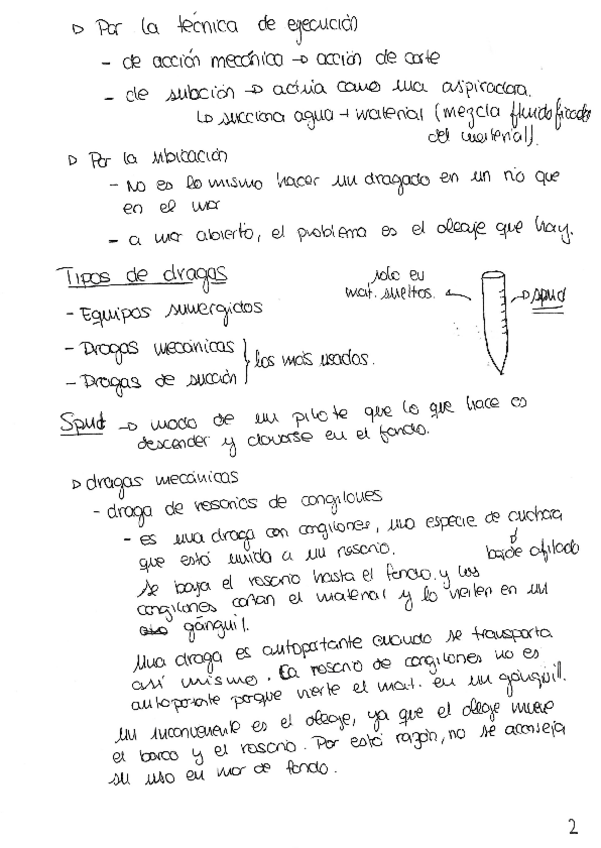 ▷ Por la técnica de ejecución
- de acción mecánica → acción de corte
- de succión → actúa como una aspiradora.
↳ succiona agua + material (mezcla fluidificada
del material).
▷ Por la ubicación
- No es lo mismo hacer un dragado en un río que
en el mar
- a mar abierto, el problema es el oleaje que hay.
Tipos de dragas
solo en
mat. sueltos. ← → spud
- Equipos sumergidos
- Dragas mecánicas
- Dragas de succión } las más usadas.
Spud → modo de un pilote que lo que hace es
descender y clavarse en el fondo.
▷ dragas mecánicas
- draga de rosarios de cangilones
- es una draga con cangilones, una especie de cuchara
que está unida a un rosario. borde afilado
Se baja el rosario hasta el fondo y los
cangilones cortan el material y lo vierten en un
gánguil.
Una draga es autoportante cuando se transporta
así misma. La rosario de cangilones no es
autoportante porque vierte el mat. en un gánguil.
Un inconveniente es el oleaje, ya que el oleaje mueve
el barco y el rosario. Por esta razón, no se aconseja
su uso en mar de fondo.
2